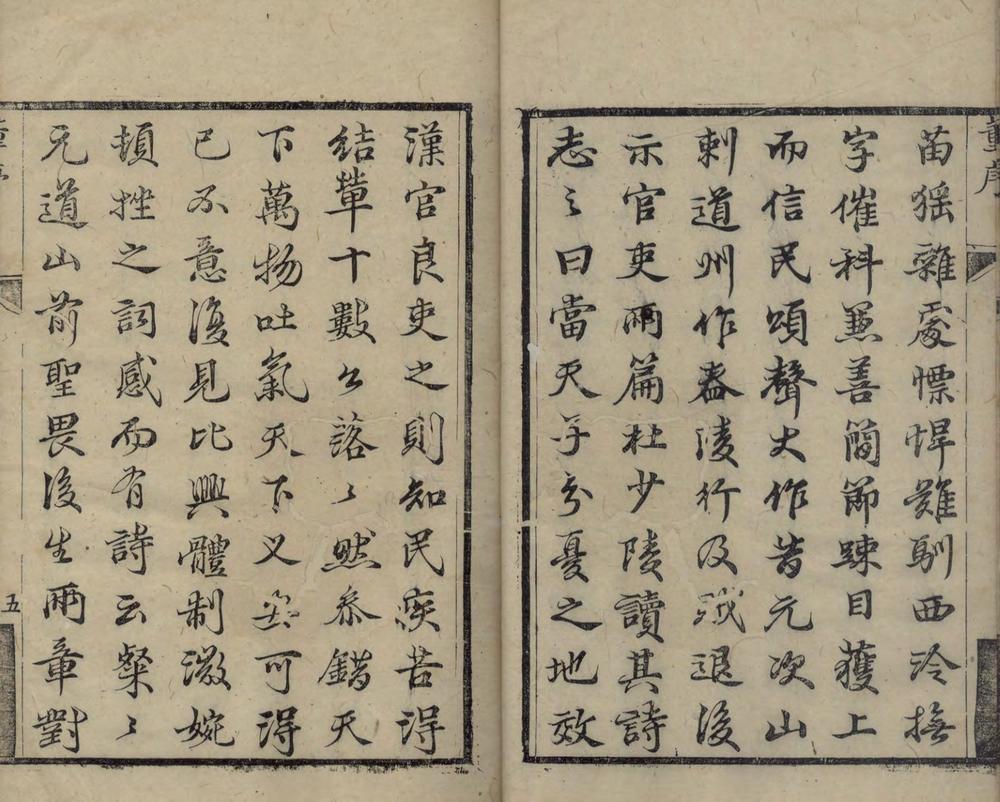 苗猺雜處慓悍難馴西泠撫
字催科兼善簡節疎目獲上
而信民頌聲大作昔元次山
刺道州作舂陵行及賊退後
示官吏兩篇杜少陵讀其詩
志之曰當天子分憂之地效
漢官良吏之則知民疾苦得
結輩十數公落〻然參錯天
下萬物吐氣天下乂安可得
已不意復見比興體制微婉
頓挫之詞感而有詩云粲〻
元道山前聖畏後生兩章對
五